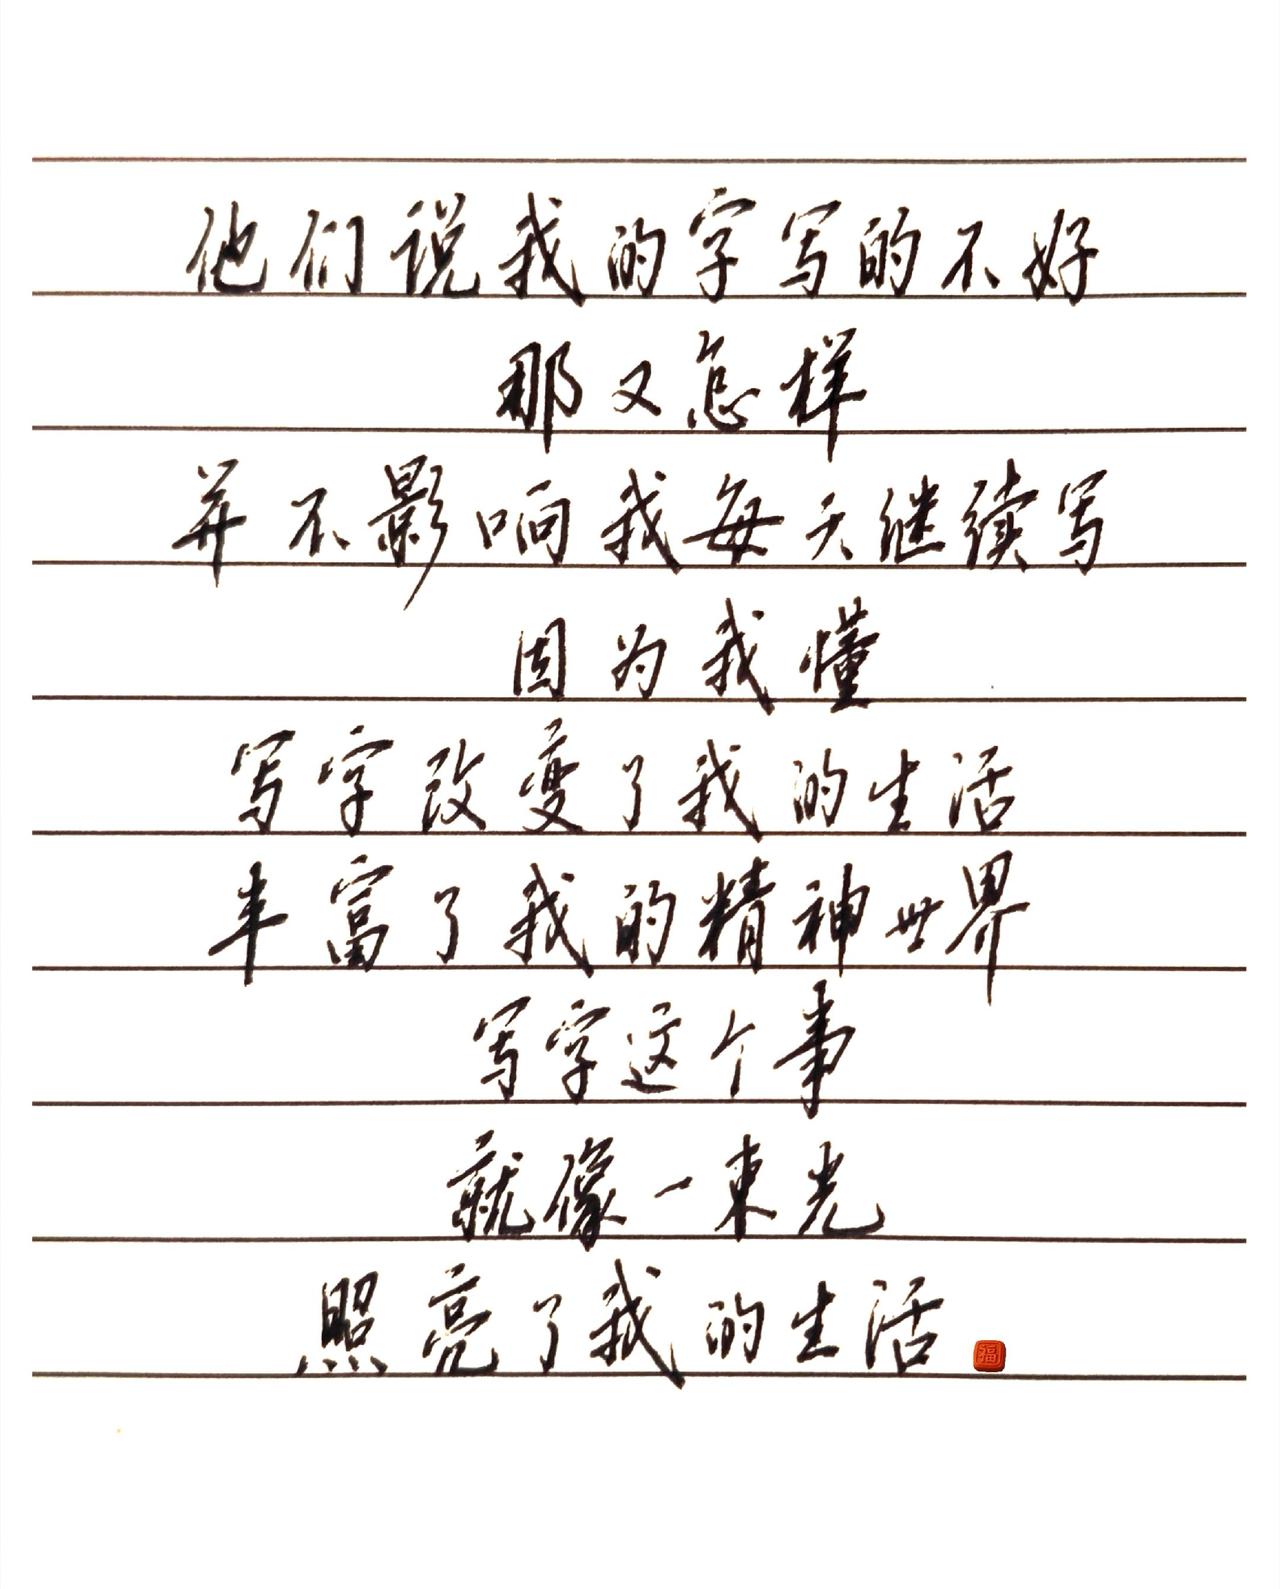 他们说我的字写的不好
那又怎样
并不影响我每天继续写
因为我懂
写字改变了我的生活
丰富了我的精神世界
写字这个事
就像一束光
照亮了我的生活
福